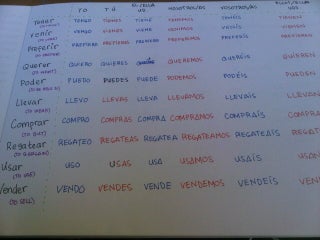 YO TÚ ÉL/ELLA UD NOSOTROS/AS VOSOTROS/AS UDS
Tener TENGO TIENES TIENE TENEMOS TENÉIS TIENEN
Venir VENGO VIENES VIENE VENIMOS VENÍS VIENEN
Preferir PREFIERO PREFIERES PREFIERE PREFERIMOS PREFERÍS PREFIEREN
Querer QUIERO QUIERES QUEREMOS QUERÉIS QUIEREN
(TO WANT)
Poder PUEDO PUEDES PUEDE PODEMOS PODÉIS PUEDEN
(TO BE ABLE TO)
Llevar LLEVO LLEVAS LLEVA LLEVAMOS LLEVÁIS LLEVAN
Comprar COMPRO COMPRAS COMPRA COMPRAMOS COMPRÁIS COMPRAN
(TO BUY)
Regatear REGATEO REGATEAS REGATEA REGATEAMOS REGATEÁIS REGATEAN
(TO BARGAIN)
Usar USO USAS USA USAMOS USÁIS USAN
(TO USE)
Vender VENDO VENDES VENDE VENDEMOS VENDÉIS VENDEN
(TO SELL)